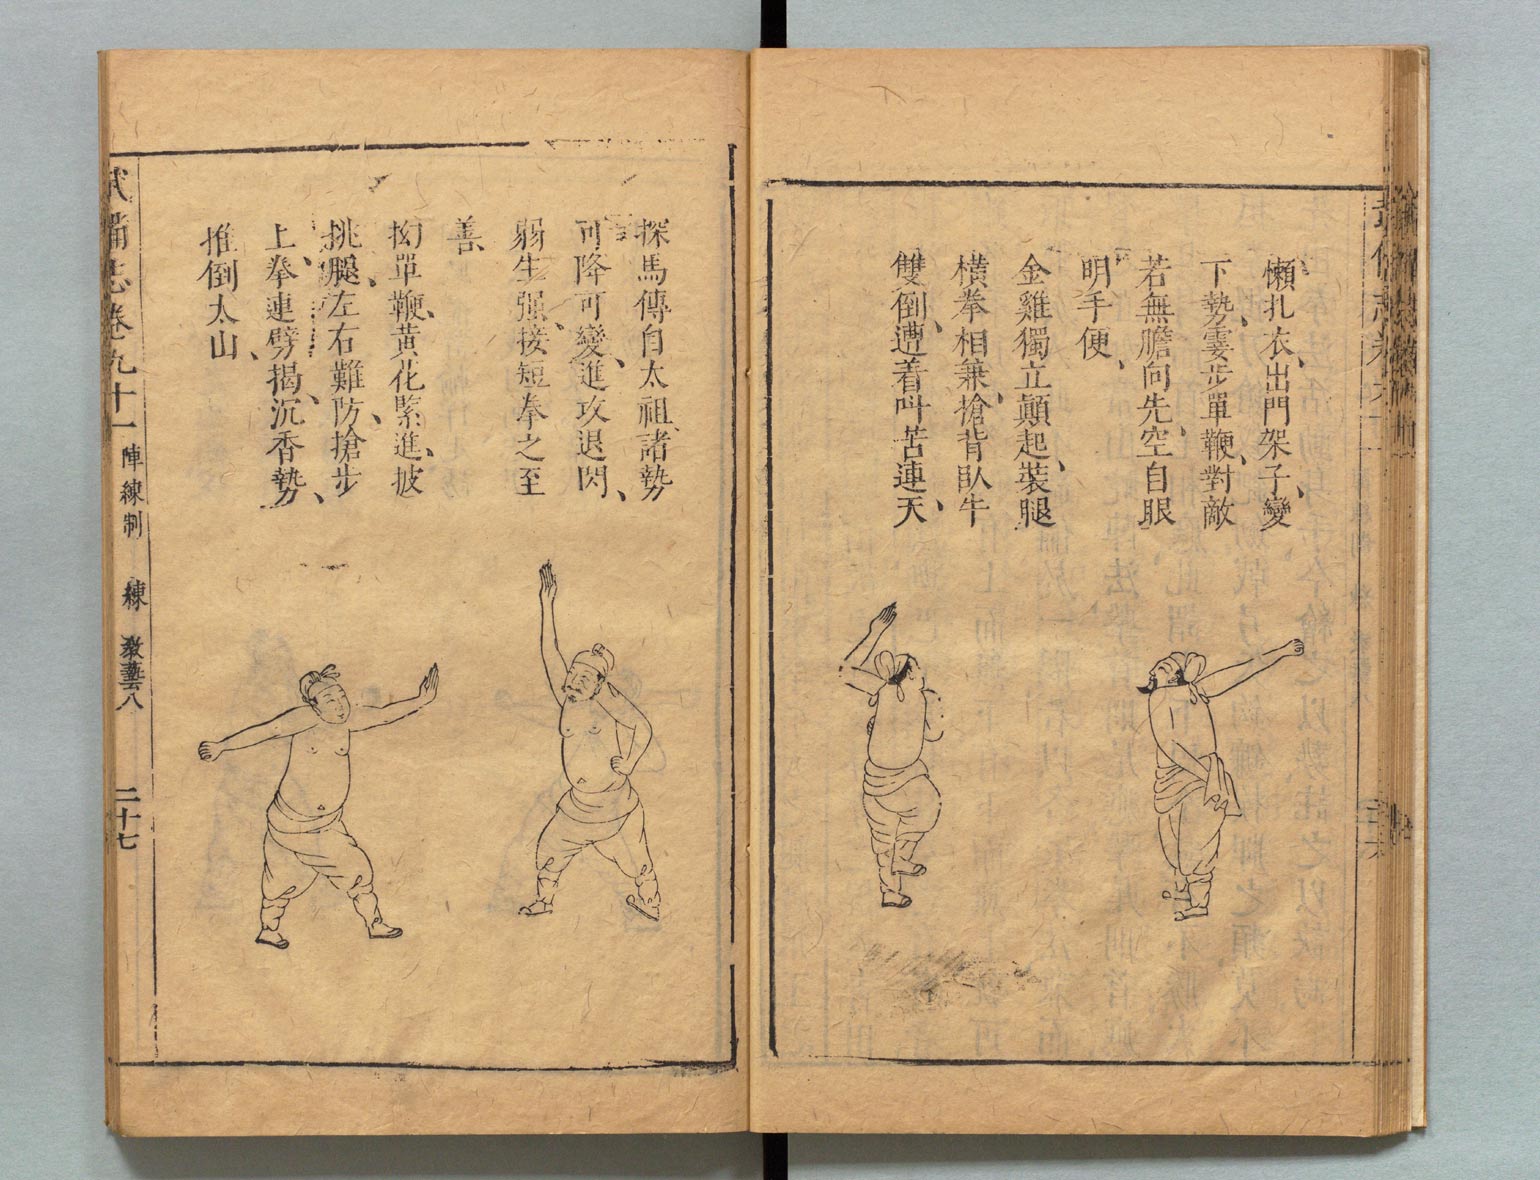 懶扎衣、出門架子、變
下勢、霎步單鞭、對敵
若無膽向先、空自眼
明手便、
金雞獨立顛起、裝腿
橫拳相兼、搶背臥牛
雙倒、遭着叫苦連天、
探馬傳自太祖、諸勢
可降可變、進攻退閃、
弱生强、接短拳之至
善、
拗單鞭、黃花緊進、披
挑腿、左右難防、搶步
上拳連劈揭、沉香勢、
推倒太山、
武備志卷九十一 陣練制 練 教藝八 二十七